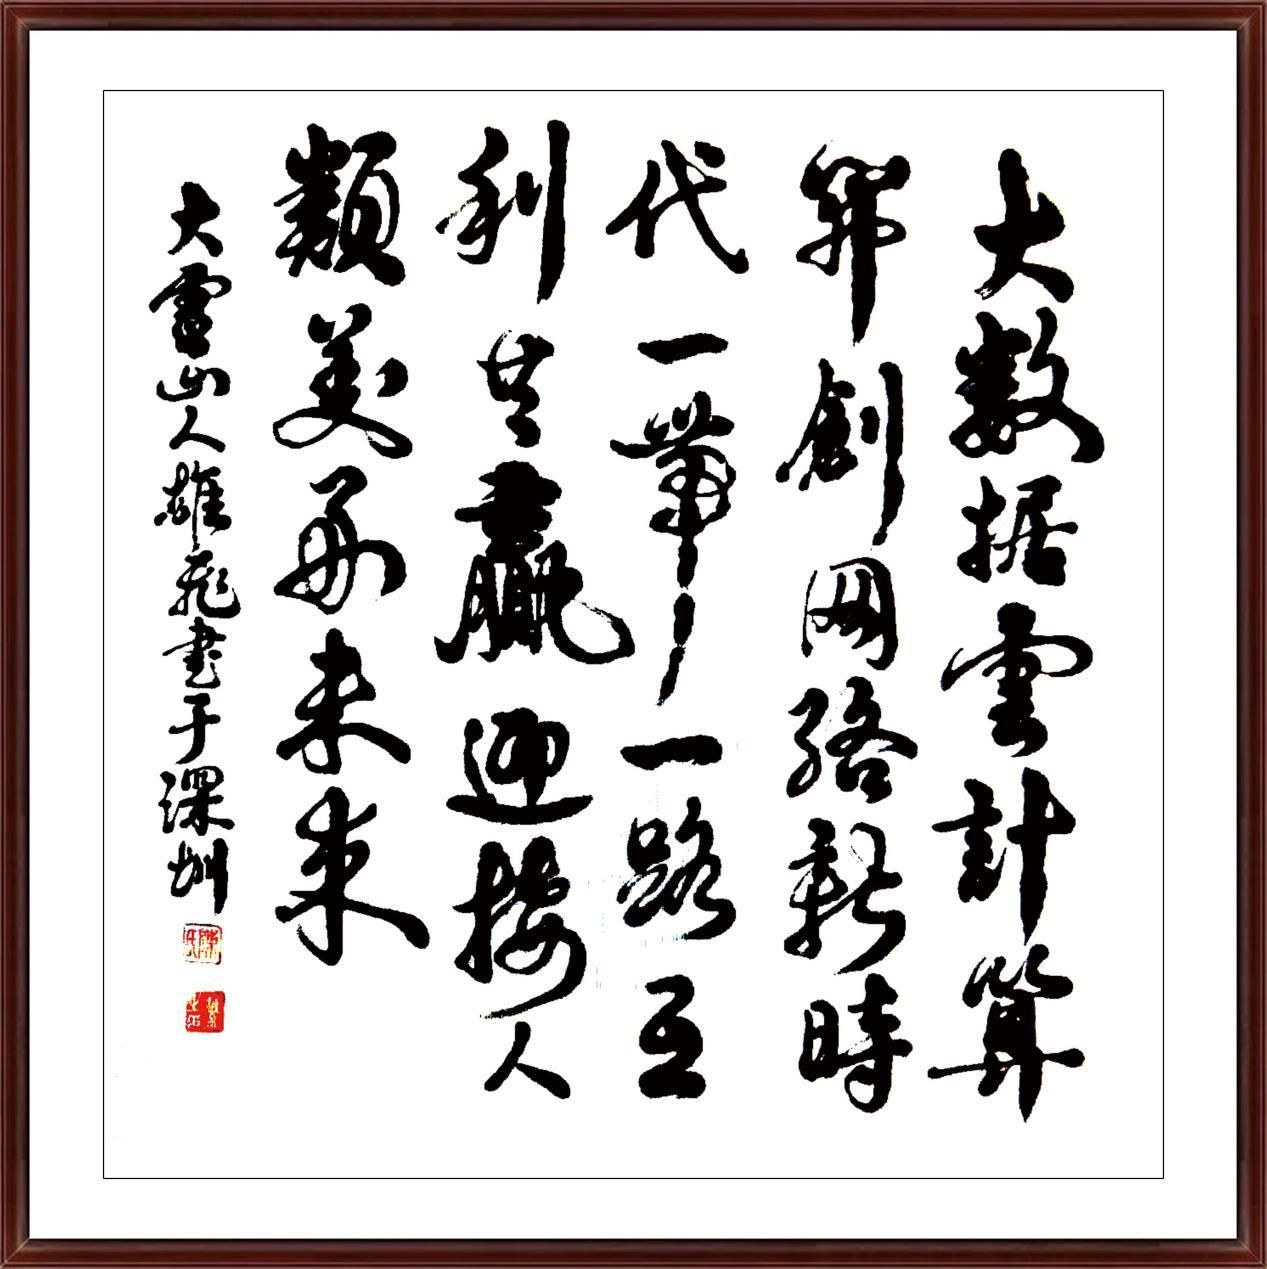 大数据雲計算
開創网络新時
代一帶一路互
利共赢迎接人
類美好未来
大雷山人雄飛書于深圳